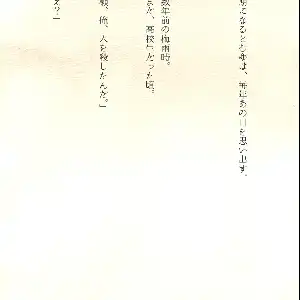 期になると心は、毎年あの日を思い出す。
数年前の梅雨時。
また、高校生だった頃。
俺、人を殺したんだ。」
え？」